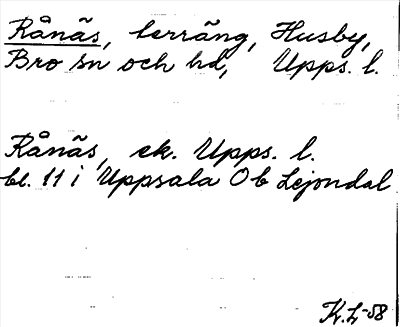 Rånäs, terräng, Husby,
Bro sn och hd, Upps. l.
Rånäs, ek. Upps. l.
bl. 11 i Uppsala Ob Lejondal
K.L-58